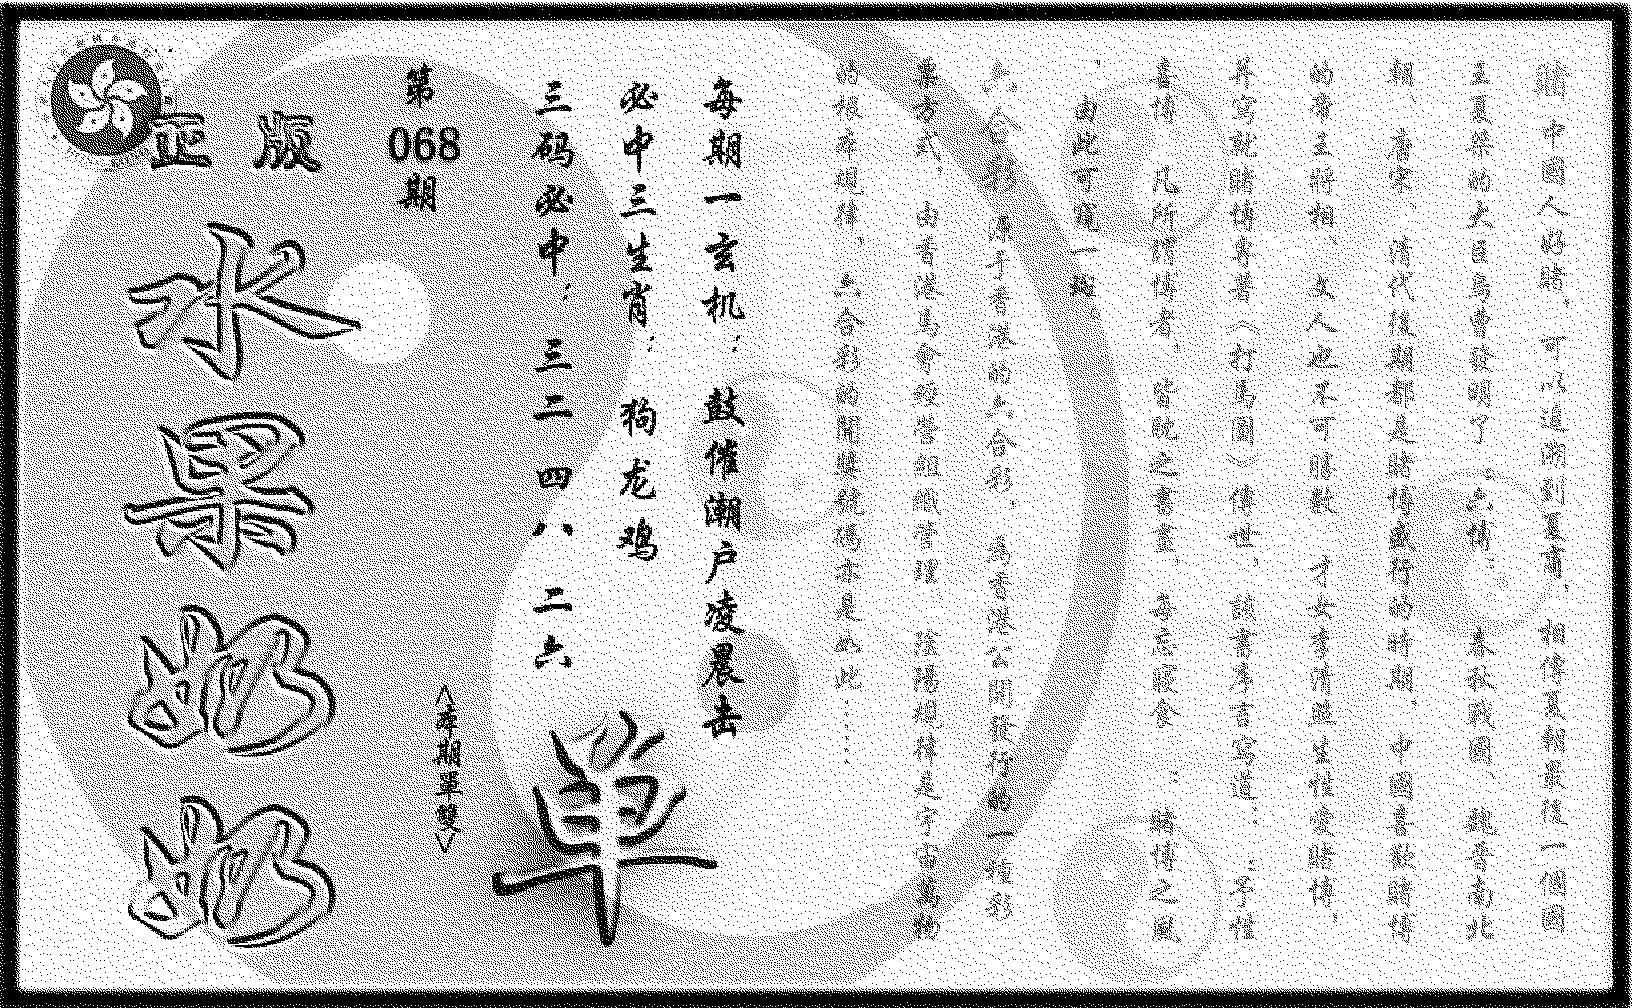 賭 中國人好賭，可以追溯到夏商，相傳夏朝最後一個國
王夏桀的大臣烏曹發明了“六博”。春秋戰國、魏晉南北
朝、唐宋、清代後期都是賭博盛行的時期。中國喜歡賭博
的帝王將相、文人也不可勝數，才女李清照生性愛賭博，
并寫就賭博專著《打馬圖》傳世，該書序言寫道：“予性
喜博，凡所謂博者，皆耽之晝，每忘寢食”；賭博之風
，由此可窺一斑
六合彩，源于香港的六合彩，為香港公開發行的一種彩
票方式，由香港馬會經營組織管理，陰陽規律是宇宙萬物
的根本規律，六合彩的開獎號碼亦是如此……
每期一玄机：鼓催潮户凌晨击
必中三生肖：狗龙鸡
三码必中：三二 四八 二六
单
<本期單雙>
第068期
正版
水果奶奶